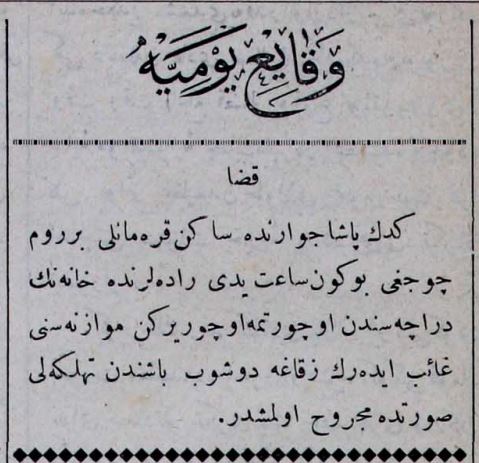 وقايع يوميه
قضا
كدك پاشا جوارنده ساكن قره‌مانلى بر روم
چوجغى بوكون ساعت يدى راده‌لرنده خانه‌نك
دراچه‌سندن اوچورتمه اوچوريركن موازنه‌سنى
غائب ايده‌رك زقاغه دوشوب باشندن تهلكه‌لى
صورتده مجروح اولمشدر.